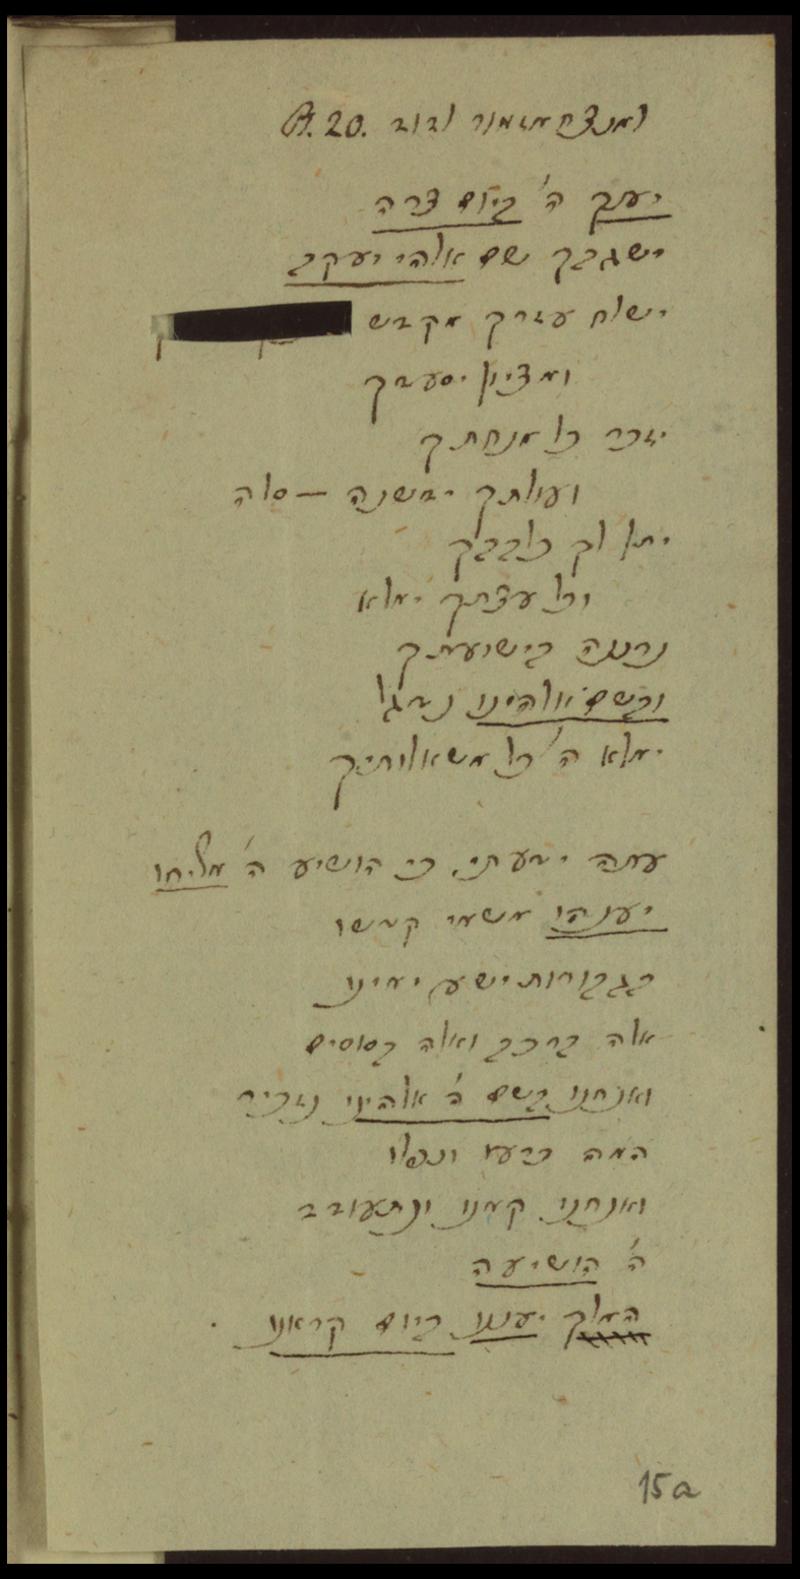 למנצח מזמור לדוד Ps. 20.
יענך ה' ביום צרה
ישגבך שם אלהי יעקב
ישלח עזרך מקדש
ומציון יסעדך
יזכר כל מנחתך
ועולתך ידשנה — סלה
יתן לך כלבבך
וכל עצתך ימלא
נרננה בישועתך
ובשם אלהינו נדגל
ימלא ה' כל משאלותיך
עתה ידעתי כי הושיע ה' משיחו
יענהו משמי קדשו
בגבורות ישע ימינו
אלה ברכב ואלה בסוסים
ואנחנו בשם ה' אלהינו נזכיר
המה כרעו ונפלו
ואנחנו קמנו ונתעודד
ה' הושיעה
המלך יעננו ביום קראנו
15a